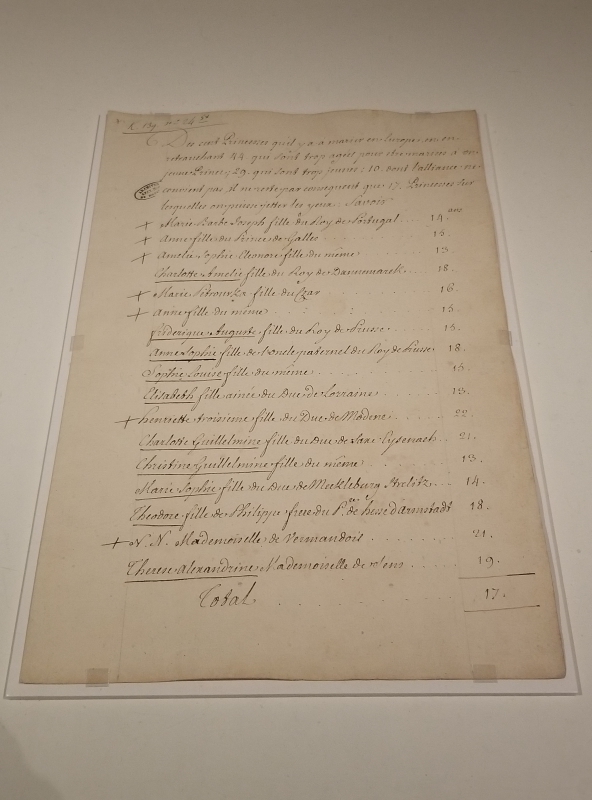 K 139 n.º 24
Des cent Princesses qu'il y a a marier en Europe, en en
retranchant 44. qui sont trop agées pour etre mariées a un
jeune Prince; 29. qui sont trop jeunes; 10. dont l'alliance ne
convient pas, il ne reste par consequent que 17. Princesses sur
lesquelles on puisse jetter les yeux. Savoir
ans
+ Marie Barbe Joseph fille du Roy de Portugal . . . 14.
+ Anne fille du Prince de Galles . . . 15.
+ Amelie Sophie Eleonore fille du même . . . 13.
Charlotte Amelie fille du Roy de Dannemarck . . . 18.
+ Marie fille du Czar . . . 16.
+ Anne fille du même . . . 15.
Friderique Auguste fille du Roy de Prusse . . . 15.
Anne Sophie fille de l'oncle paternel du Roy de Prusse 18.
Sophie Louise fille du même . . . 15.
Elisabeth fille ainée du Duc de Lorraine . . . 13.
+ henriette troisieme fille du Duc de Modene . . . 22.
Charlotte Guillelmine fille du Duc de Saxe Eysenach . . 21.
Christine Guillelmine fille du même . . . 13.
Marie Sophie fille du Duc de Mecklenburg Strelitz . . . 14.
Theodore fille de Philippe frere du P. de hesse d'armstadt 18.
+ N. N. Mademoiselle de Vermandois . . . 21.
Therese Alexandrine Mademoiselle de Sens . . . 19.
Total . . . 17.